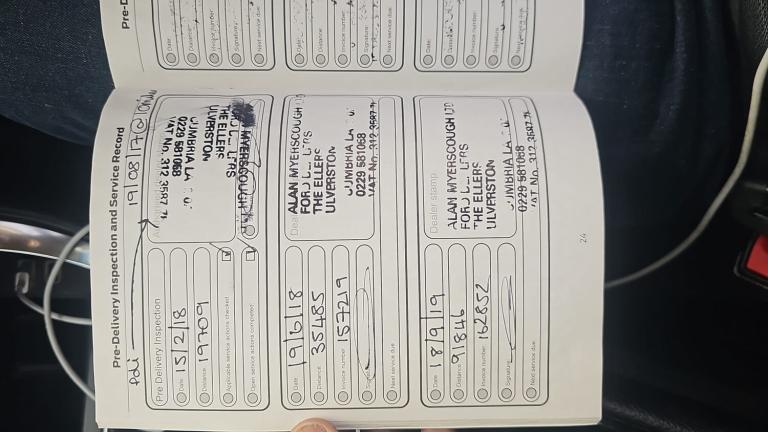 Pre-Delivery Inspection and Service Record
pdi 19/08/17 @
Pre Delivery Inspection
Date: 15/2/18
Distance: 19709
Applicable service actions checked
Open service actions completed
ALAN MYERSCOUGH
THE ELLERS
ULVERSTON
CUMBRIA LA
0229 581068
VAT No. 312 3587 71
Date: 19/6/18
Distance: 35485
Invoice number: 157219
Next service due:
Dealer
ALAN MYERSCOUGH LTD
THE ELLERS
ULVERSTON
CUMBRIA LA
0229 581068
VAT No. 312 3587 71
Date: 18/9/19
Distance: 91846
Invoice number: 162852
Signature:
Next service due:
Dealer stamp
ALAN MYERSCOUGH LTD
THE ELLERS
ULVERSTON
CUMBRIA LA
0229 581068
VAT No. 312 3587 71
24
Date:
Distance:
Invoice number:
Signature:
Next service due:
Date:
Distance:
Invoice number:
Signature:
Next service due:
Date:
Invoice number:
Signature: